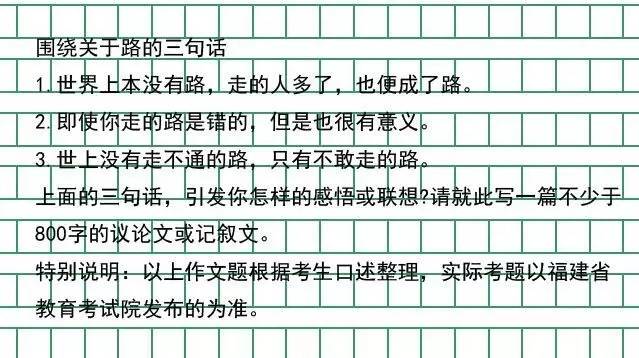 围绕关于路的三句话
1.世界上本没有路，走的人多了，也便成了路。
2.即使你走的路是错的，但是也很有意义。
3.世上没有走不通的路，只有不敢走的路。
上面的三句话，引发你怎样的感悟或联想?请就此写一篇不少于
800字的议论文或记叙文。
特别说明：以上作文题根据考生口述整理，实际考题以福建省
教育考试院发布的为准。